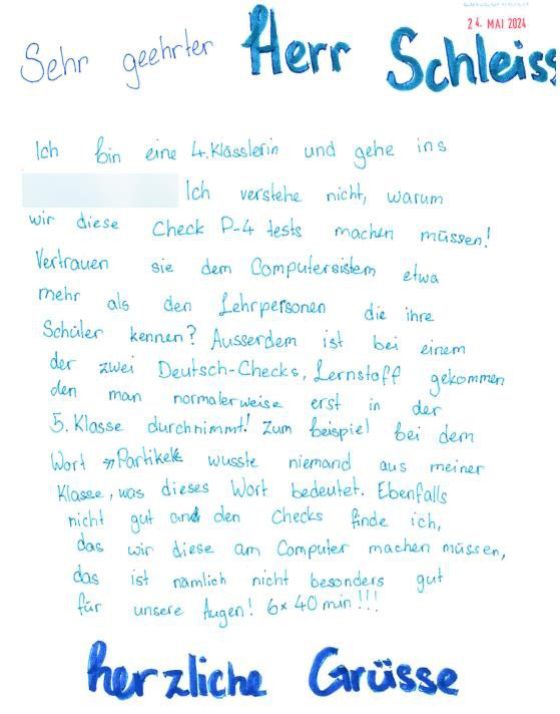 24. MAI 2024
Sehr geehrter Herr Schleiss
Ich bin eine 4. Klässlerin und gehe ins
Ich verstehe nicht, warum
wir diese Check P-4 tests machen müssen!
Vertrauen sie dem Computersistem etwa
mehr als den Lehrpersonen die ihre
Schüler kennen? Ausserdem ist bei einem
der zwei Deutsch-Checks, Lernstoff gekommen
den man normalerweise erst in der
5. Klasse durchnimmt! Zum beispiel bei dem
Wort »Partikel« wusste niemand aus meiner
Klasse, was dieses Wort bedeutet. Ebenfalls
nicht gut and den Checks finde ich,
das wir diese am Computer machen müssen,
das ist nämlich nicht besonders gut
für unsere Augen! 6x 40 min!!!
herzliche Grüsse